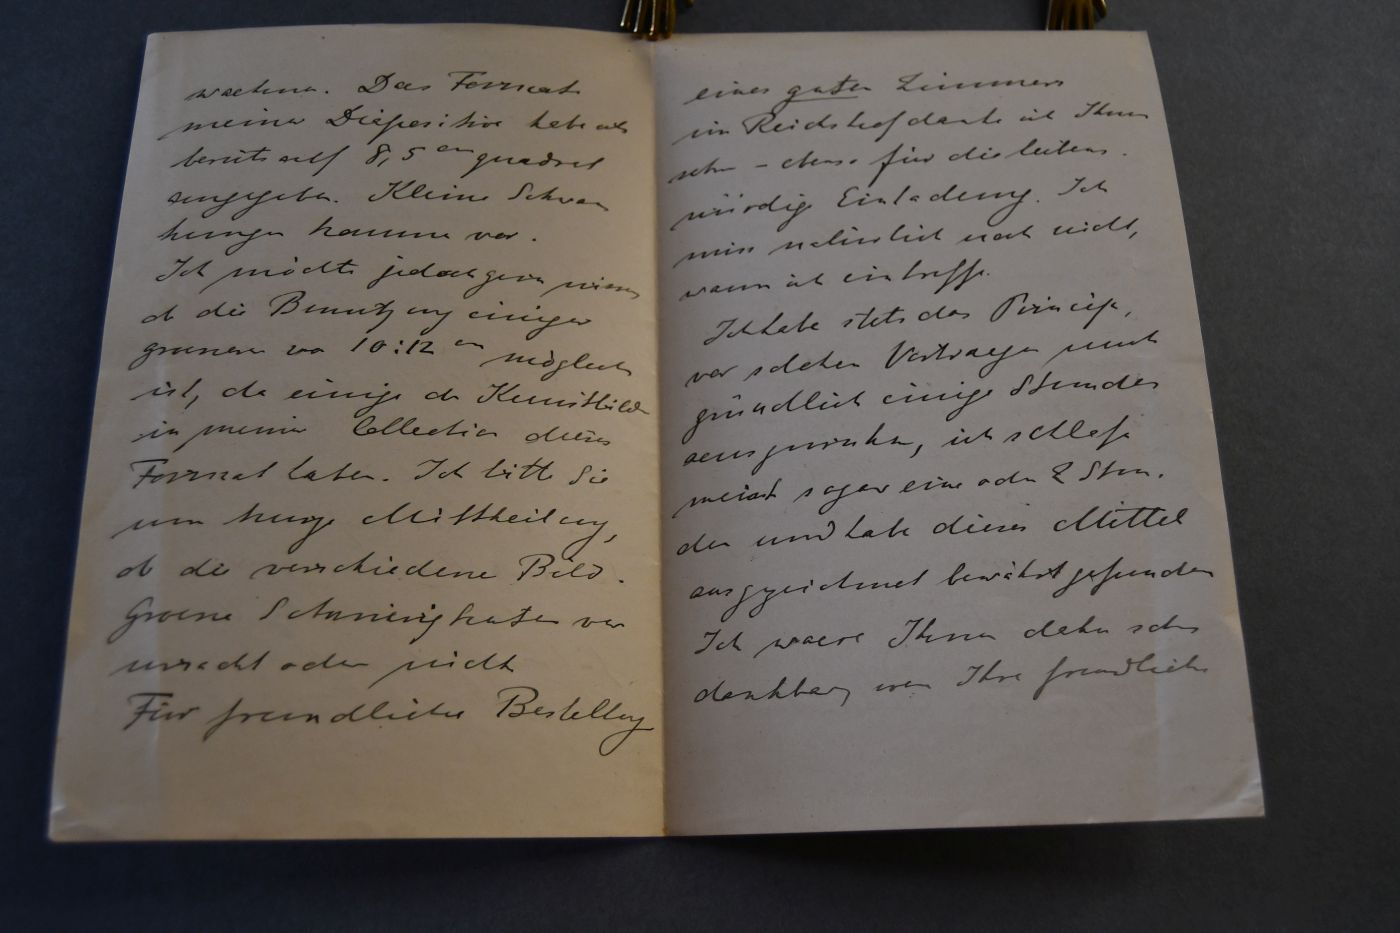 wachsen. Das Format
meiner Diapositive habe ich
bereits auf 8,5 cm quadrat
angegeben. Kleine Schwan
kungen kommen vor.
Ich möchte jedoch gern wissen
ob die Benutzung einiger
grösserer von 10:12 cm möglich
ist, da einige der Kunstbilder
in meiner Collection dieses
Format haben. Ich bitte Sie
um kurze Mittheilung,
ob die verschiedene Bild-
Grösse Schwierigkeiten ver
ursacht oder nicht
Für freundliche Bestellung
eines guten Zimmers
im Reichshof danke ich Ihnen
sehr – ebenso für die liebens-
würdige Einladung. Ich
weiss natürlich noch nicht,
wann ich eintreffe.
Ich habe stets das Princip,
vor solchen Vortraegen
gründlich einige Stunden
auszuruhen, ich schlafe
meist sogar eine oder 2 Stun-
den und habe dieses Mittel
ausgezeichnet bewährt gefunden
Ich waere Ihnen daher sehr
dankbar, wenn Ihre freundliche